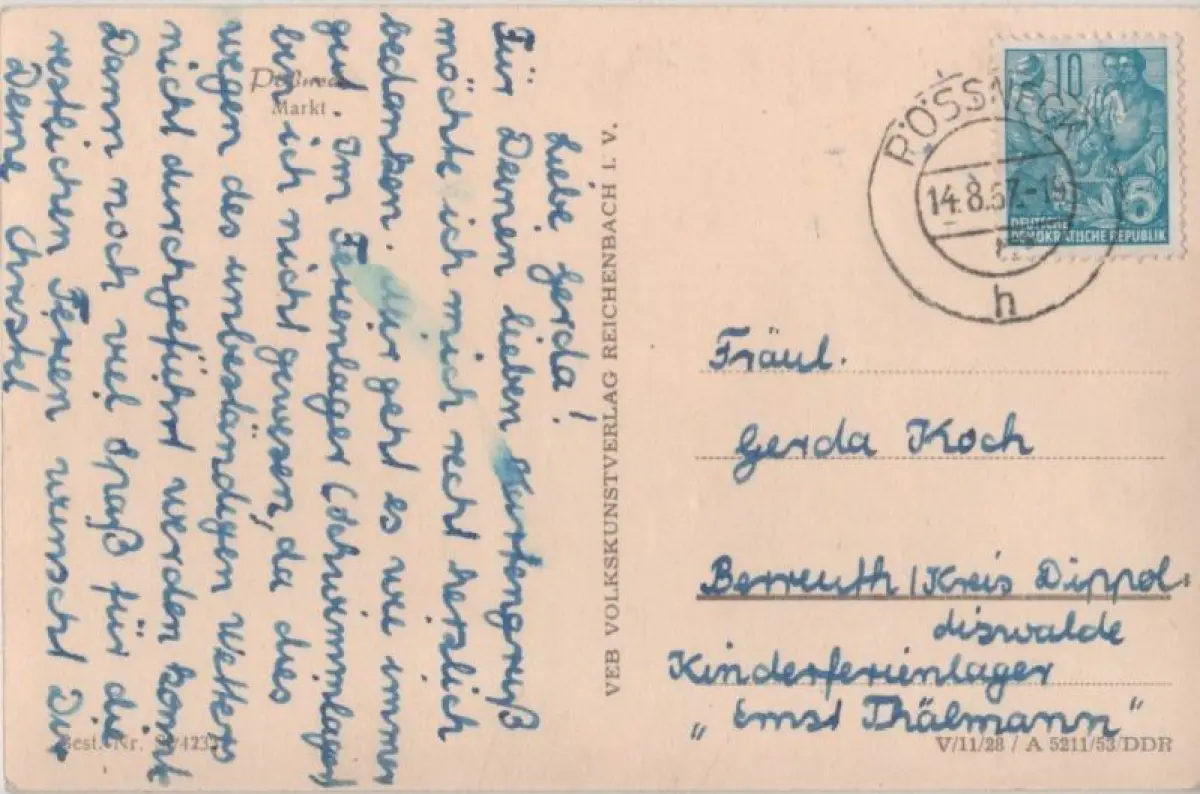 Liebe Gerda!
Für Deinen lieben Kartengruß
möchte ich mich recht herzlich
bedanken. Mir geht es wie immer
gut. Im Ferienlager (Schwimmlager)
bin ich nicht gewesen, da dies
wegen des unbeständigen Wetters
nicht durchgeführt werden konnte
Dann noch viel Spaß für die
restlichen Ferien wünscht Dir
Deine Christel
Pößneck
Markt
Best.-Nr.
VEB VOLKSKUNSTVERLAG REICHENBACH I. V.
10
5
DEUTSCHE
DEMOKRATISCHE REPUBLIK
PÖSSNECK
14.8.57.-19
h
Fräul.
Gerda Koch
Berreuth/Kreis Dippol-
diswalde
Kinderferienlager
„Ernst Thälmann"
V/11/28 / A 5211/53/DDR